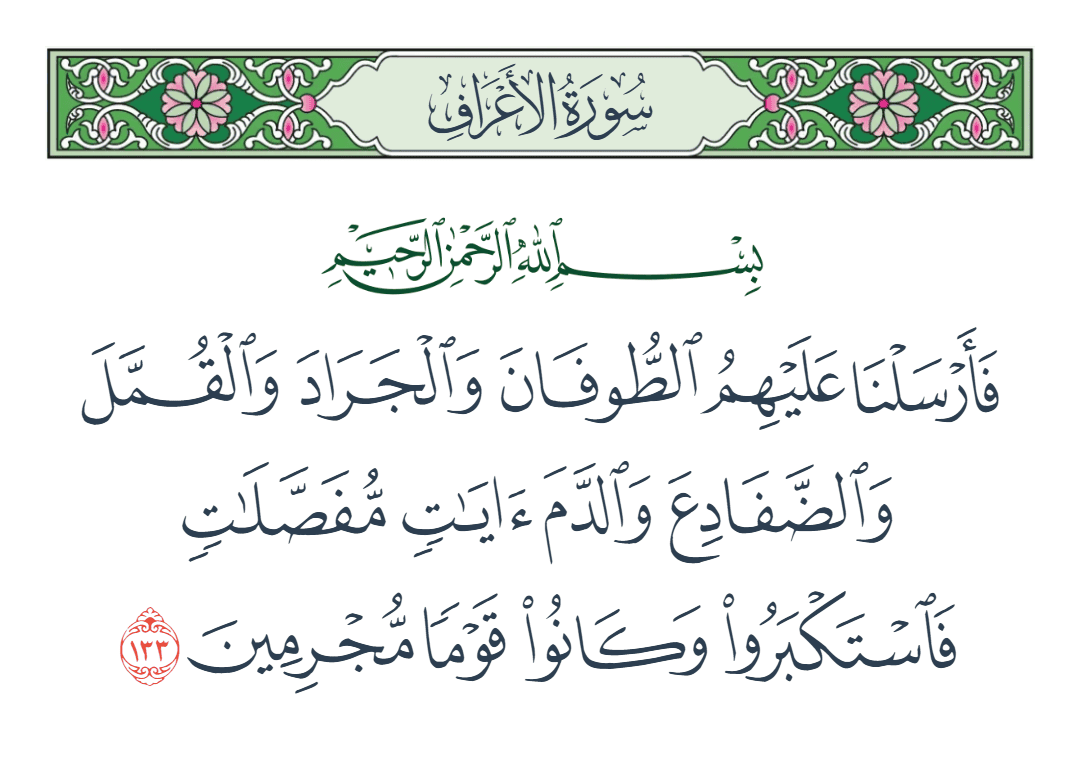 سُورَةُ الأَعْرَافِ
بِسْمِ ٱللَّهِ ٱلرَّحْمَٰنِ ٱلرَّحِيمِ
فَأَرْسَلْنَا عَلَيْهِمُ ٱلطُّوفَانَ وَٱلْجَرَادَ وَٱلْقُمَّلَ
وَٱلضَّفَادِعَ وَٱلدَّمَ ءَايَٰتٍ مُّفَصَّلَٰتٍ
فَٱسْتَكْبَرُوا۟ وَكَانُوا۟ قَوْمًا مُّجْرِمِينَ ١٣٣